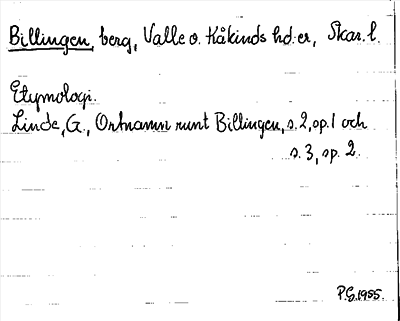 Billingen, berg, Valle o. Kåkinds hd:er, Skar. l.
Etymologi.
Linde, G., Ortnamn runt Billingen, s. 2, sp. 1 och
s. 3, sp. 2.
P.G. 1955.